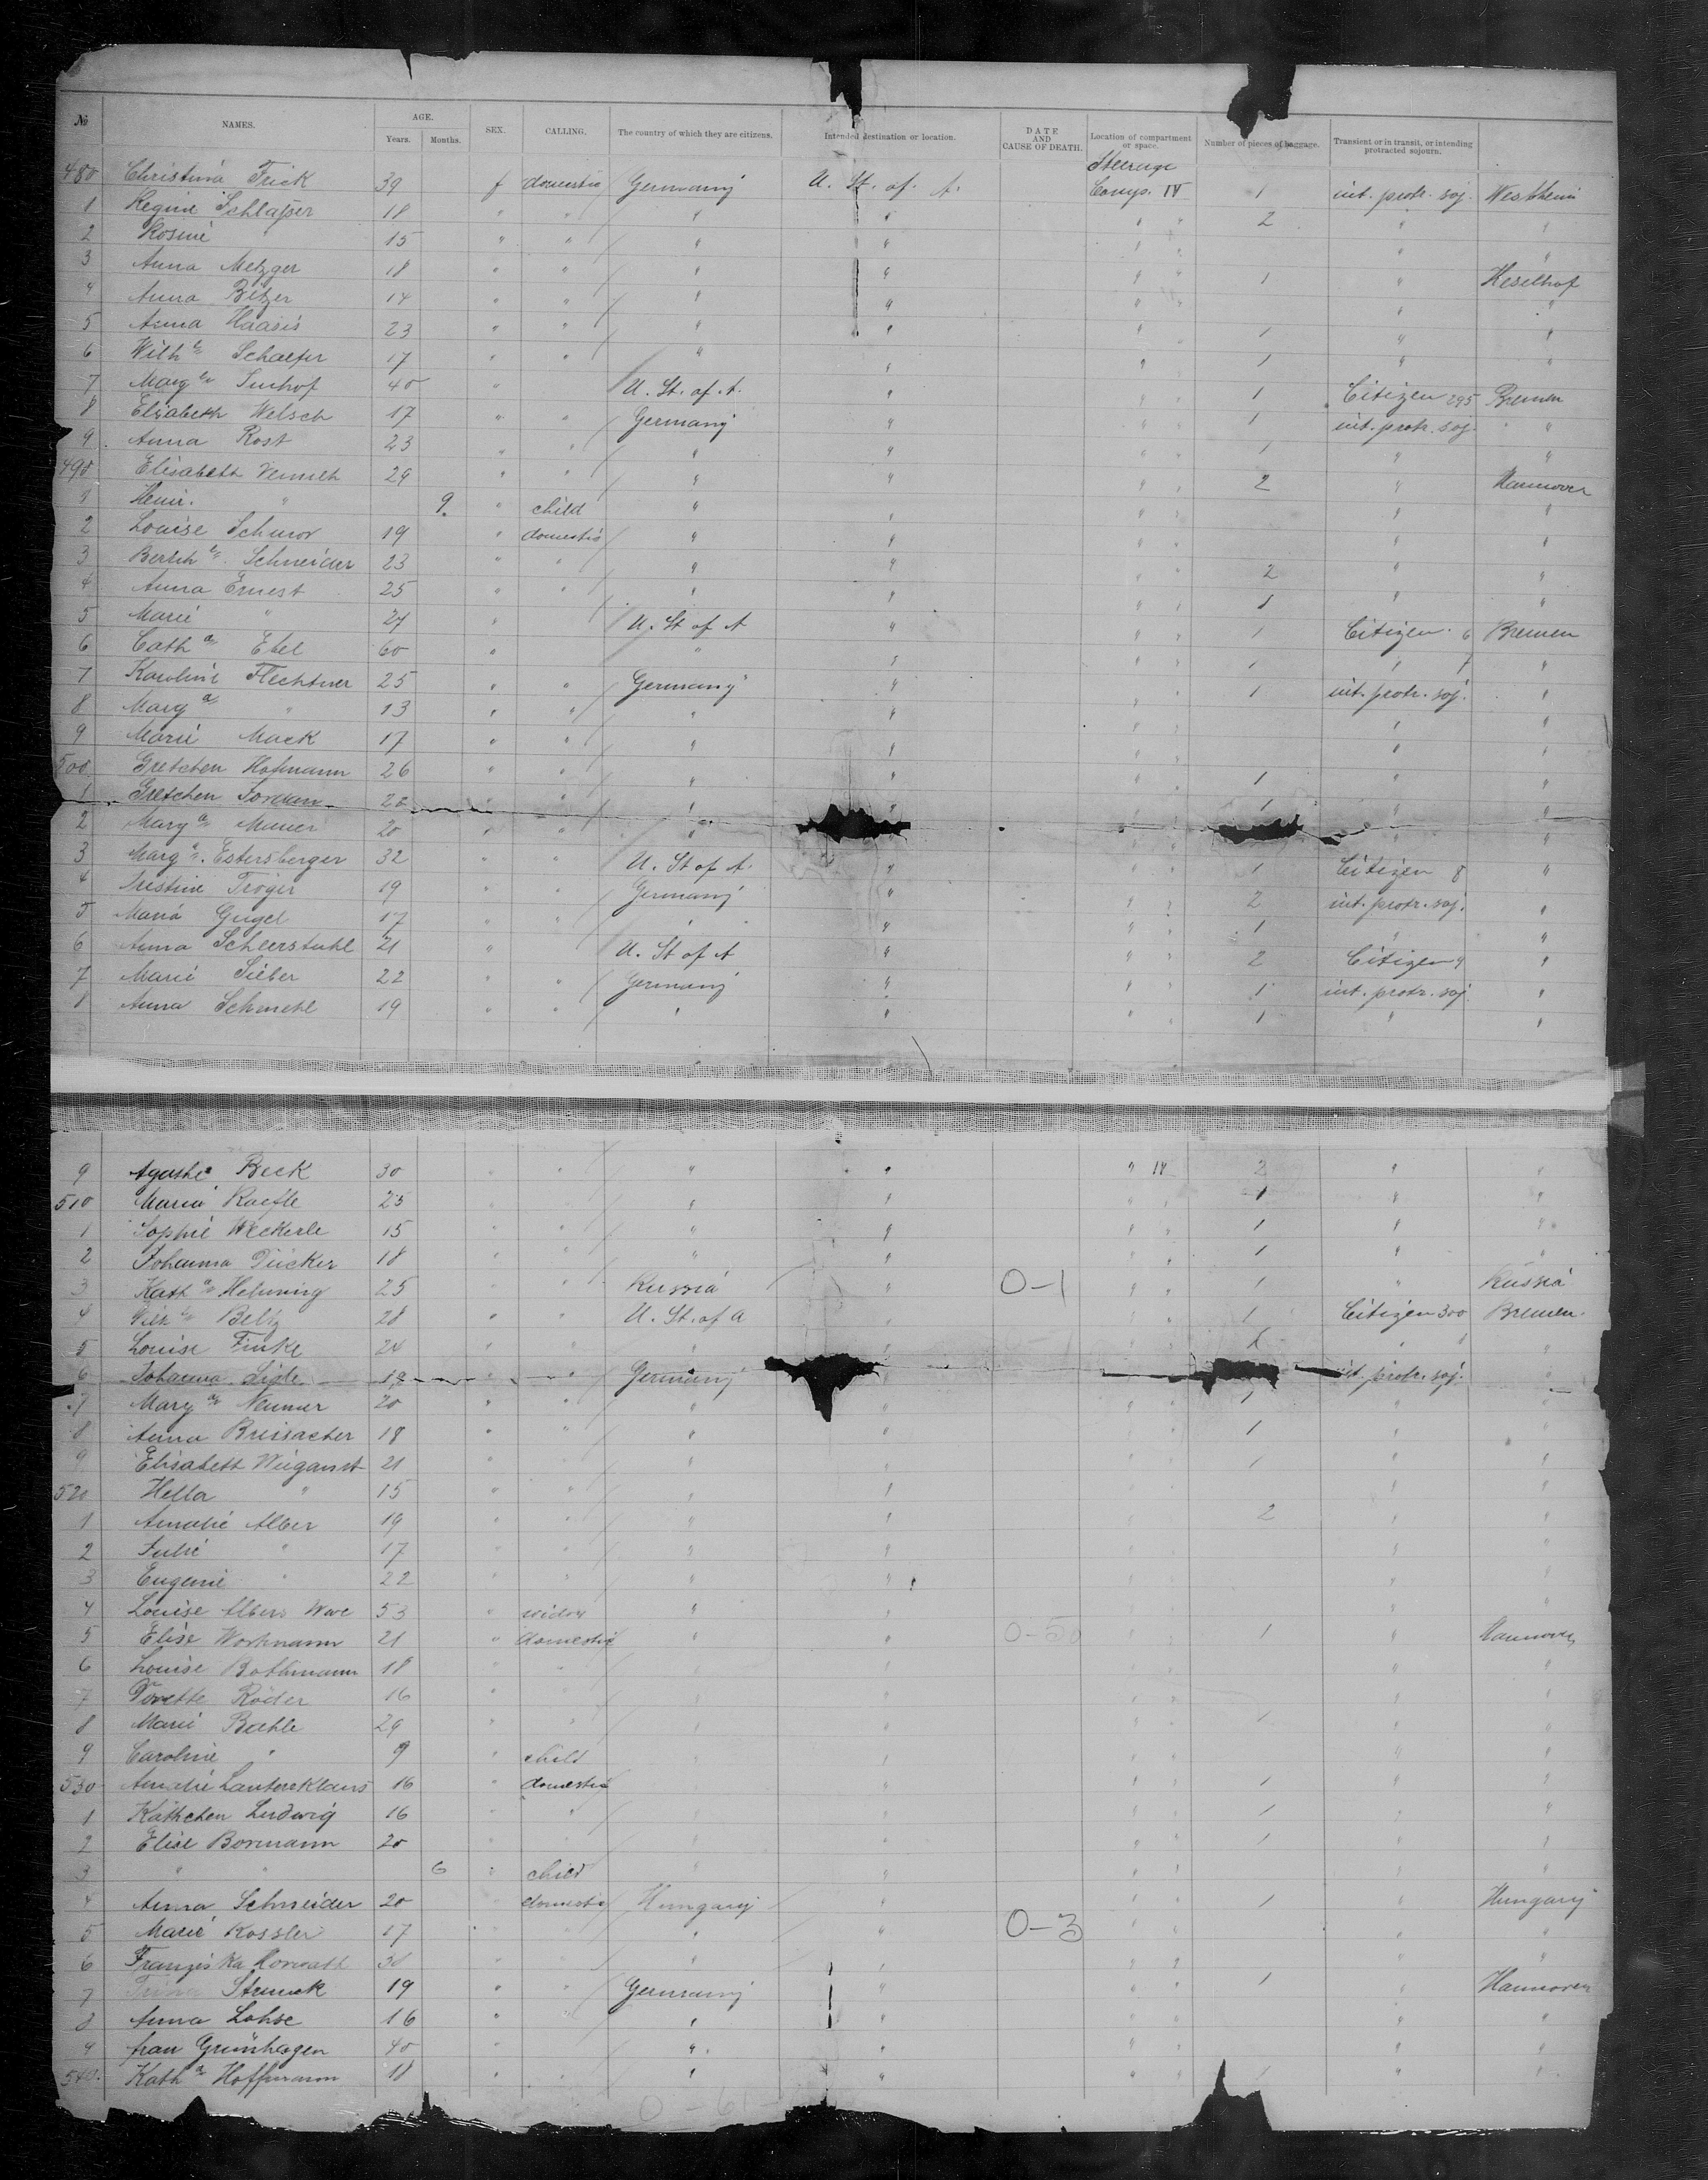 No. NAMES. AGE. Years. Months. SEX. CALLING. The country of which they are citizens. Intended destination or location. DATE AND CAUSE OF DEATH. Location of compartment or space. Number of pieces of baggage. Transient or in transit, or intending protracted sojourn.
480 Christina Frick 39 f domestic Germany U. St. of. A. Steerage Comp. IV 1 int. protr. soj. Westheim
1 Regine Schlasser 18 " " " " " " 2 " "
2 Rosine " 15 " " " " " " " "
3 Anna Metzger 18 " " " " " " 1 " Heselhof
4 Anna Bitzer 14 " " " " " " " "
5 Anna Haasis 23 " " " " " " 1 " "
6 Wilhe Schaefer 17 " " " " " 1 " "
7 Marg Imhof 40 " U. St. of. A. " " " 1 Citizen 295 Bremen
8 Elisabeth Welsch 17 " " Germany " " " 1 int. protr. soj. "
9 Anna Rost 23 " " " " " " 1 " "
490 Elisabeth 29 " " " " " " 2 " Hannover
1 Heinr. " 9 " child " " " "
2 Louise 19 " domestic " " " "
3 Berth Schneider 23 " " " " " " 2 " "
4 Anna Ernest 25 " " " " " " 1 " "
5 Marie " 24 " U. St of A " " " 1 Citizen 6 Bremen
6 Catha Ebel 60 " " " " " 1 " 7 "
7 Karoline Flechtner 25 " " Germany " " 1 int. protr. soj. "
8 Marga " 13 " " " " " " " "
9 Marie Mack 17 " " " " " " " "
500 Gretchen Hofmann 26 " " " " " " 1 " "
1 Gretchen Jordan " " " " " " 1 " "
2 Marga 20 " " " " " " " "
3 Marga. Estersberger 32 " " U. St of A. " " " 1 Citizen 8 "
4 Tröger 19 " " Germany " " " 2 int. protr. soj. "
5 Maria Gugel 17 " " " " " " 1 " "
6 Anna Scheerstuhl 21 " U. St of A " " " 2 Citizen 9 "
7 Marie Sieber 22 " " Germany " " " 1 int. protr. soj "
8 Anna Schmehl 19 " " " " " " 1 " "
9 Agathe Beck 30 " " " " " IV 2 " "
510 Maria Raefle 25 " " " " " 1 " "
1 Sophie Weckerle 15 " " " " " " 1 " "
2 Johanna Dücker 18 " " " " " 1 " "
3 Katha Helming 25 " " Russia " 0-1 " " 1 " Russia
4 Wilhe Beltz 28 " " U. St. of A " " " 1 Citizen 300 Bremen.
5 Louise Finke 24 " " " " " " 1 " 1 "
6 Johanna Ligle " " Germany int. protr. soj. "
7 Marga Neumer 20 " " " " " " 1 " "
8 Anna Breisacher 18 " " " " " " 1 " "
9 Elisabeth Weiganst 21 " " " " " " 1 " "
520 Hella " 15 " " " " " " " "
1 Amalie Alber 19 " " " " " " 2 " "
2 Julie " 17 " " " " " " " "
3 Eugenie " 22 " " " " " " " "
4 Louise Albers Wwe 53 " widow " " " " " "
5 Elise Workmann 21 " domestic " " 0-50 " " 1 " Hannover
6 Louise Bothmann 18 " " " " " " " "
7 Dorette Röder 16 " " " " " " " "
8 Marie Baehle 29 " " " " " " 1 " "
9 Caroline " 9 " child " " " " " "
530 Amalie Lautereklaus 16 " domestic " " " 1 " "
1 Käthchen Ludwig 16 " " " " " " 1 " "
2 Elise Bormann 20 " " " " " " 1 " "
3 " " 6 " child " " " " " "
4 Anna Schneider 20 " domestic Hungary " " " 1 " Hungary
5 Marie Kossler 17 " " " " 0-3 " " " "
6 Franziska Horwath 30 " " " " " " " "
7 Trina Strunck 19 " " Germany " " " 1 " Hannover
8 Anna Lohse 16 " " " " " " " "
9 Frau Grünhagen 40 " " " " " " " "
540. Katha Hoffmann 18 " " " " " " 1 " "
0-61